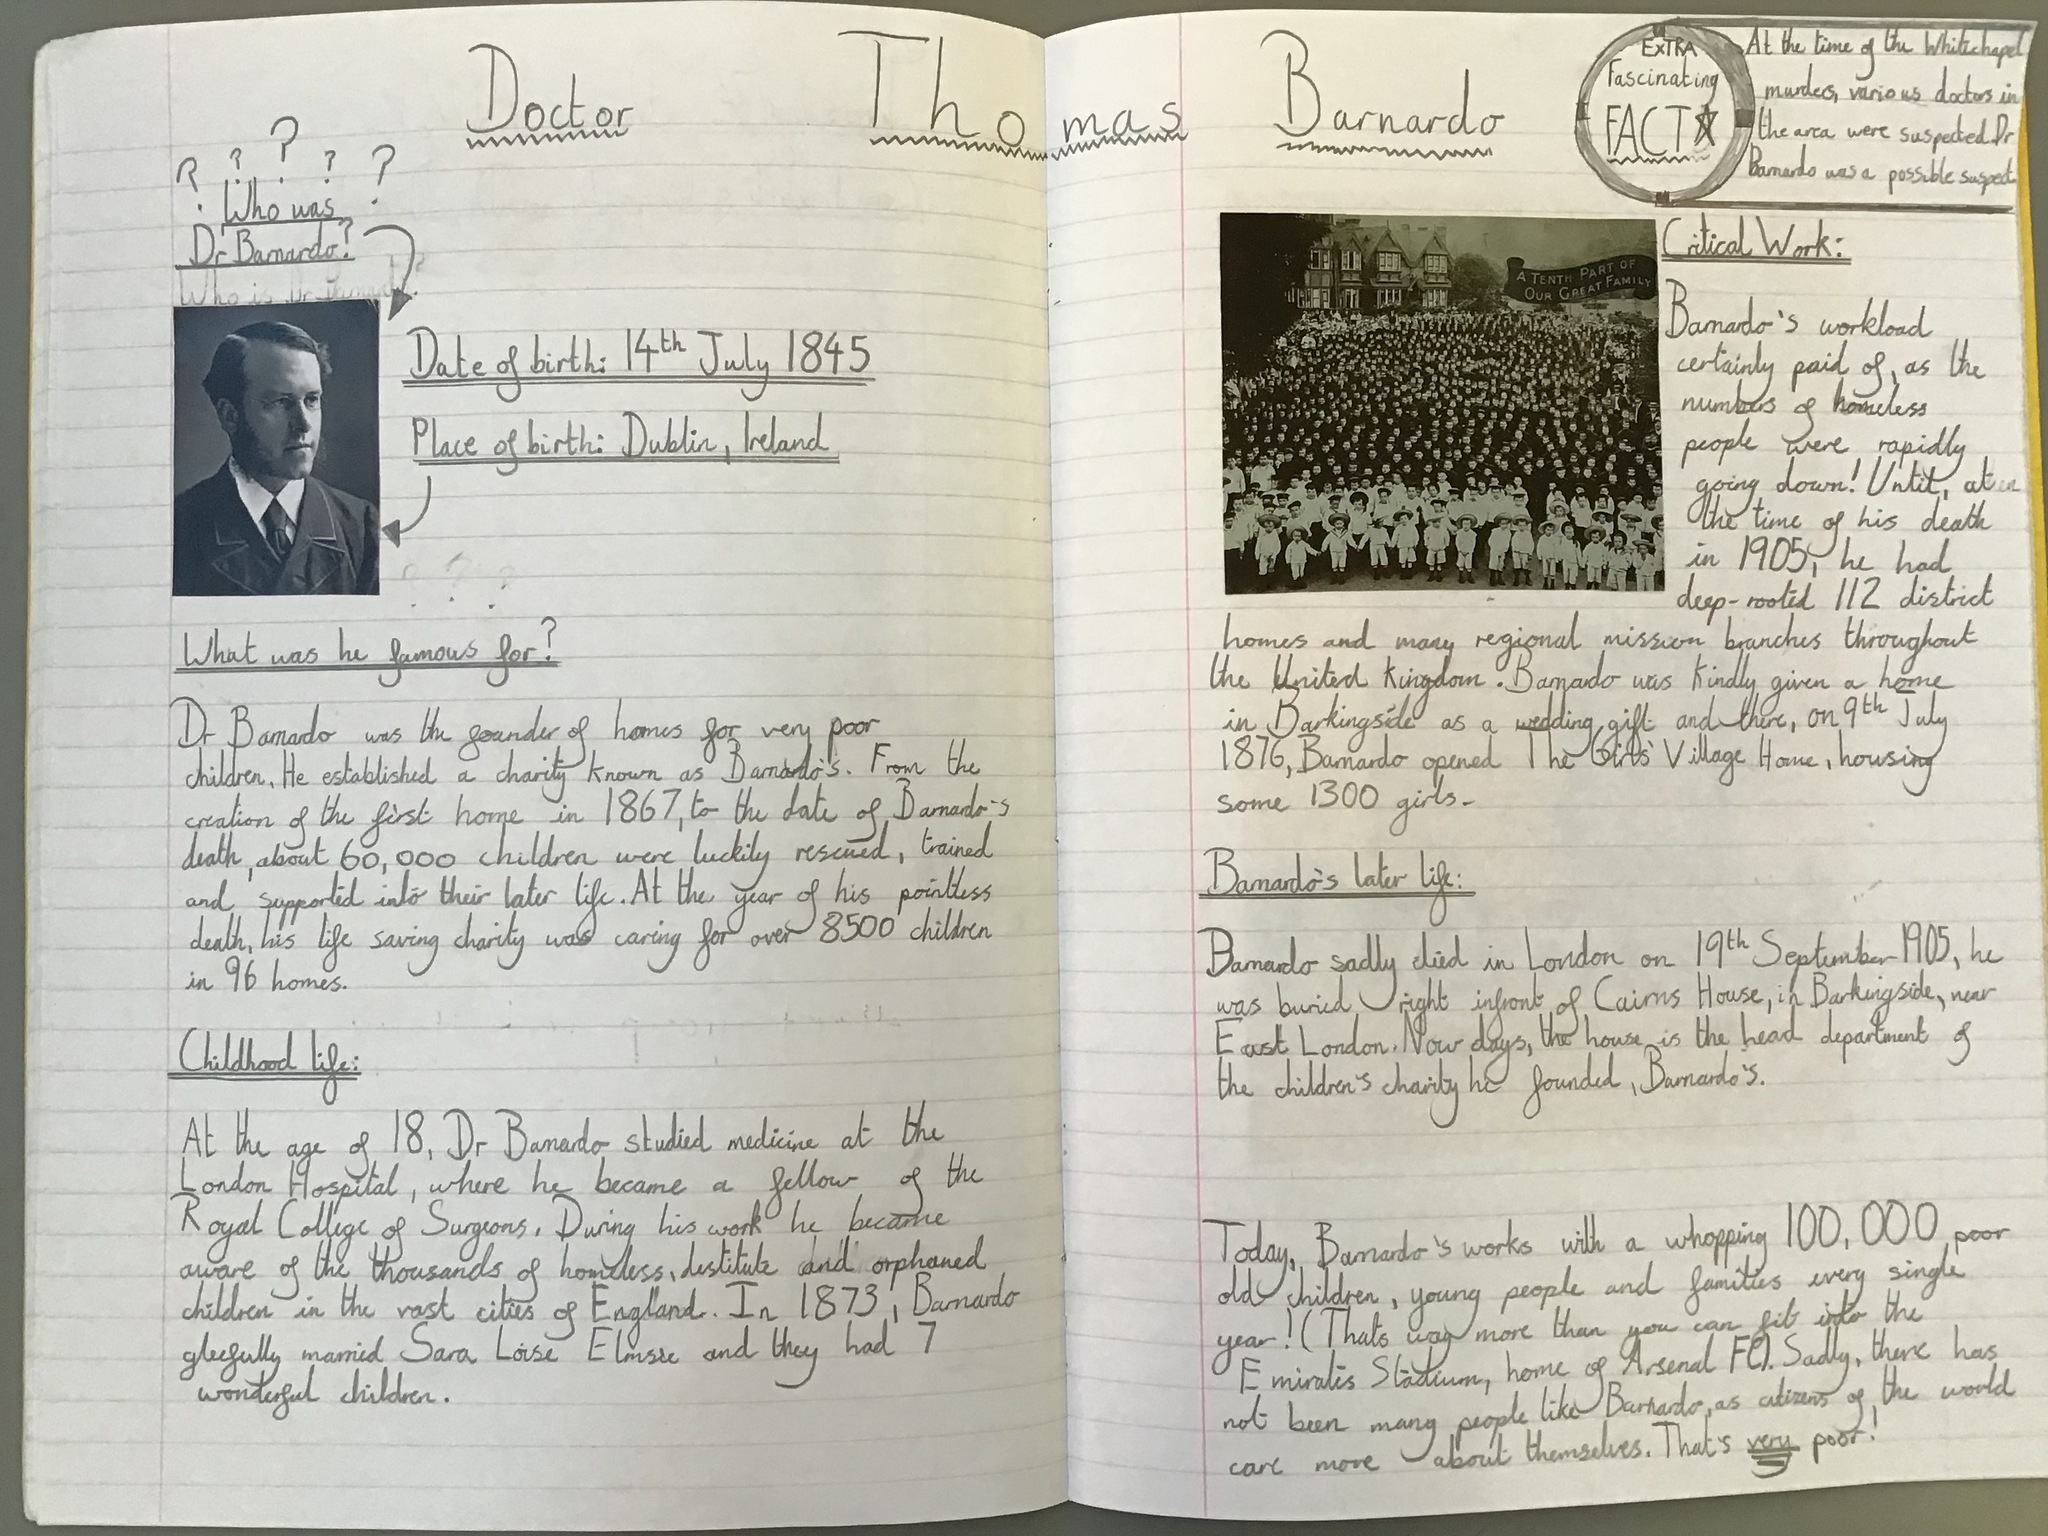 Doctor Thomas Barnardo
? ? ? ? ?
Who was
Dr Barnardo?
Date of birth: 14th July 1845
Place of birth: Dublin, Ireland
What was he famous for?
Dr Barnardo was the founder of homes for very poor
children. He established a charity known as Barnardo's. From the
creation of the first home in 1867, to the date of Barnardo's
death, about 60,000 children were luckily rescued, trained
and supported into their later life. At the year of his pointless
death, his life saving charity was caring for over 8500 children
in 96 homes.
Childhood life:
At the age of 18, Dr Barnardo studied medicine at the
London Hospital, where he became a fellow of the
Royal College of Surgeons. During his work he became
aware of the thousands of homeless, destitute and orphaned
children in the vast cities of England. In 1873, Barnardo
gleefully married Sara Loise Elmsie and they had 7
wonderful children.
EXTRA
Fascinating
FACT
At the time of the Whitechapel
murders, various doctors in
the area were suspected. Dr
Barnardo was a possible suspect.
A TENTH PART OF
OUR GREAT FAMILY
Critical Work:
Barnardo's workload
certainly paid of, as the
numbers of homeless
people were rapidly
going down! Until, at
the time of his death
in 1905, he had
deep-rooted 112 district
homes and many regional mission branches throughout
the United Kingdom. Barnardo was kindly given a home
in Barkingside as a wedding gift and there, on 9th July
1876, Barnardo opened The Girls' Village Home, housing
some 1300 girls.
Barnardo's later life:
Barnardo sadly died in London on 19th September 1905, he
was buried right infront of Cairns House, in Barkingside, near
East London. Now days, the house is the head department of
the children's charity he founded, Barnardo's.
Today, Barnardo's works with a whopping 100,000 poor
old children, young people and families every single
year! (Thats way more than you can fit into the
Emirates Stadium, home of Arsenal FC). Sadly, there has
not been many people like Barnardo, as citizens of the world
care more about themselves. That's very poor!